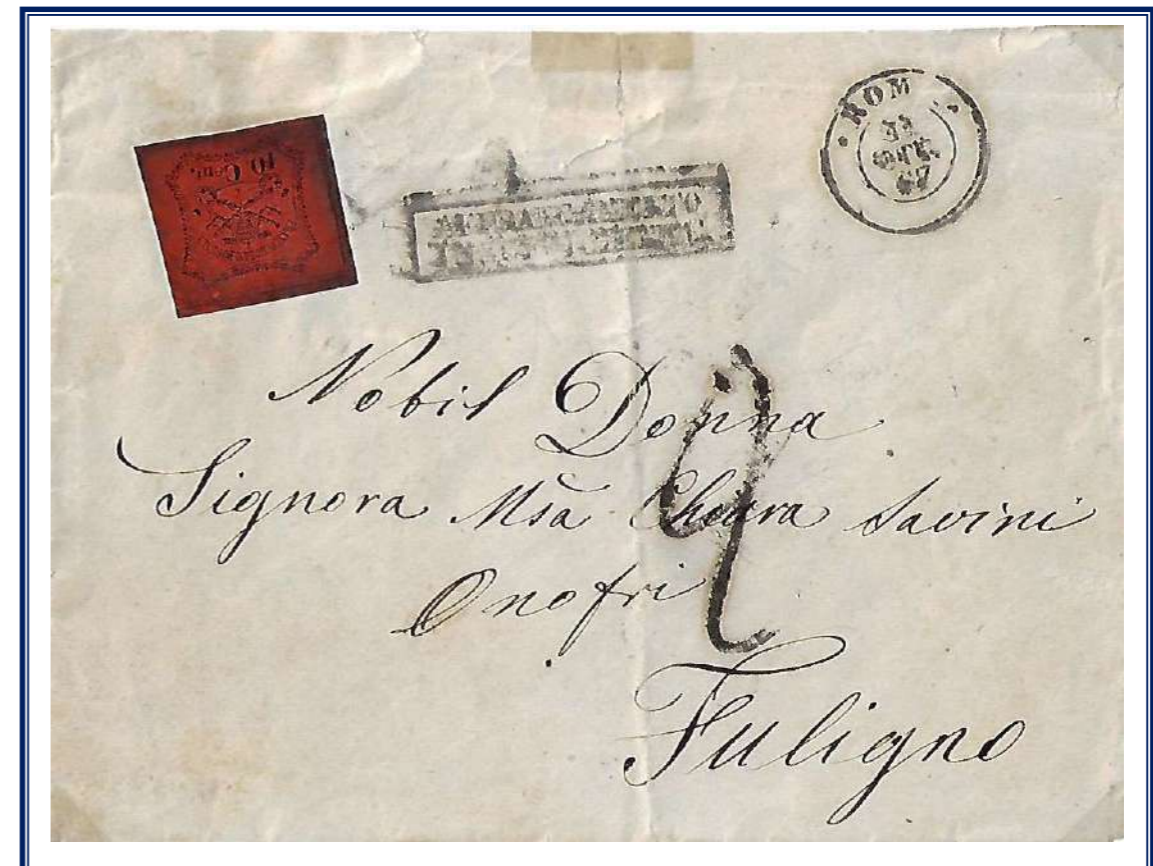 10 Cent.
ROM
67
Nobil Donna
Signora Msa Chiara Savini
Onofri
Fuligno